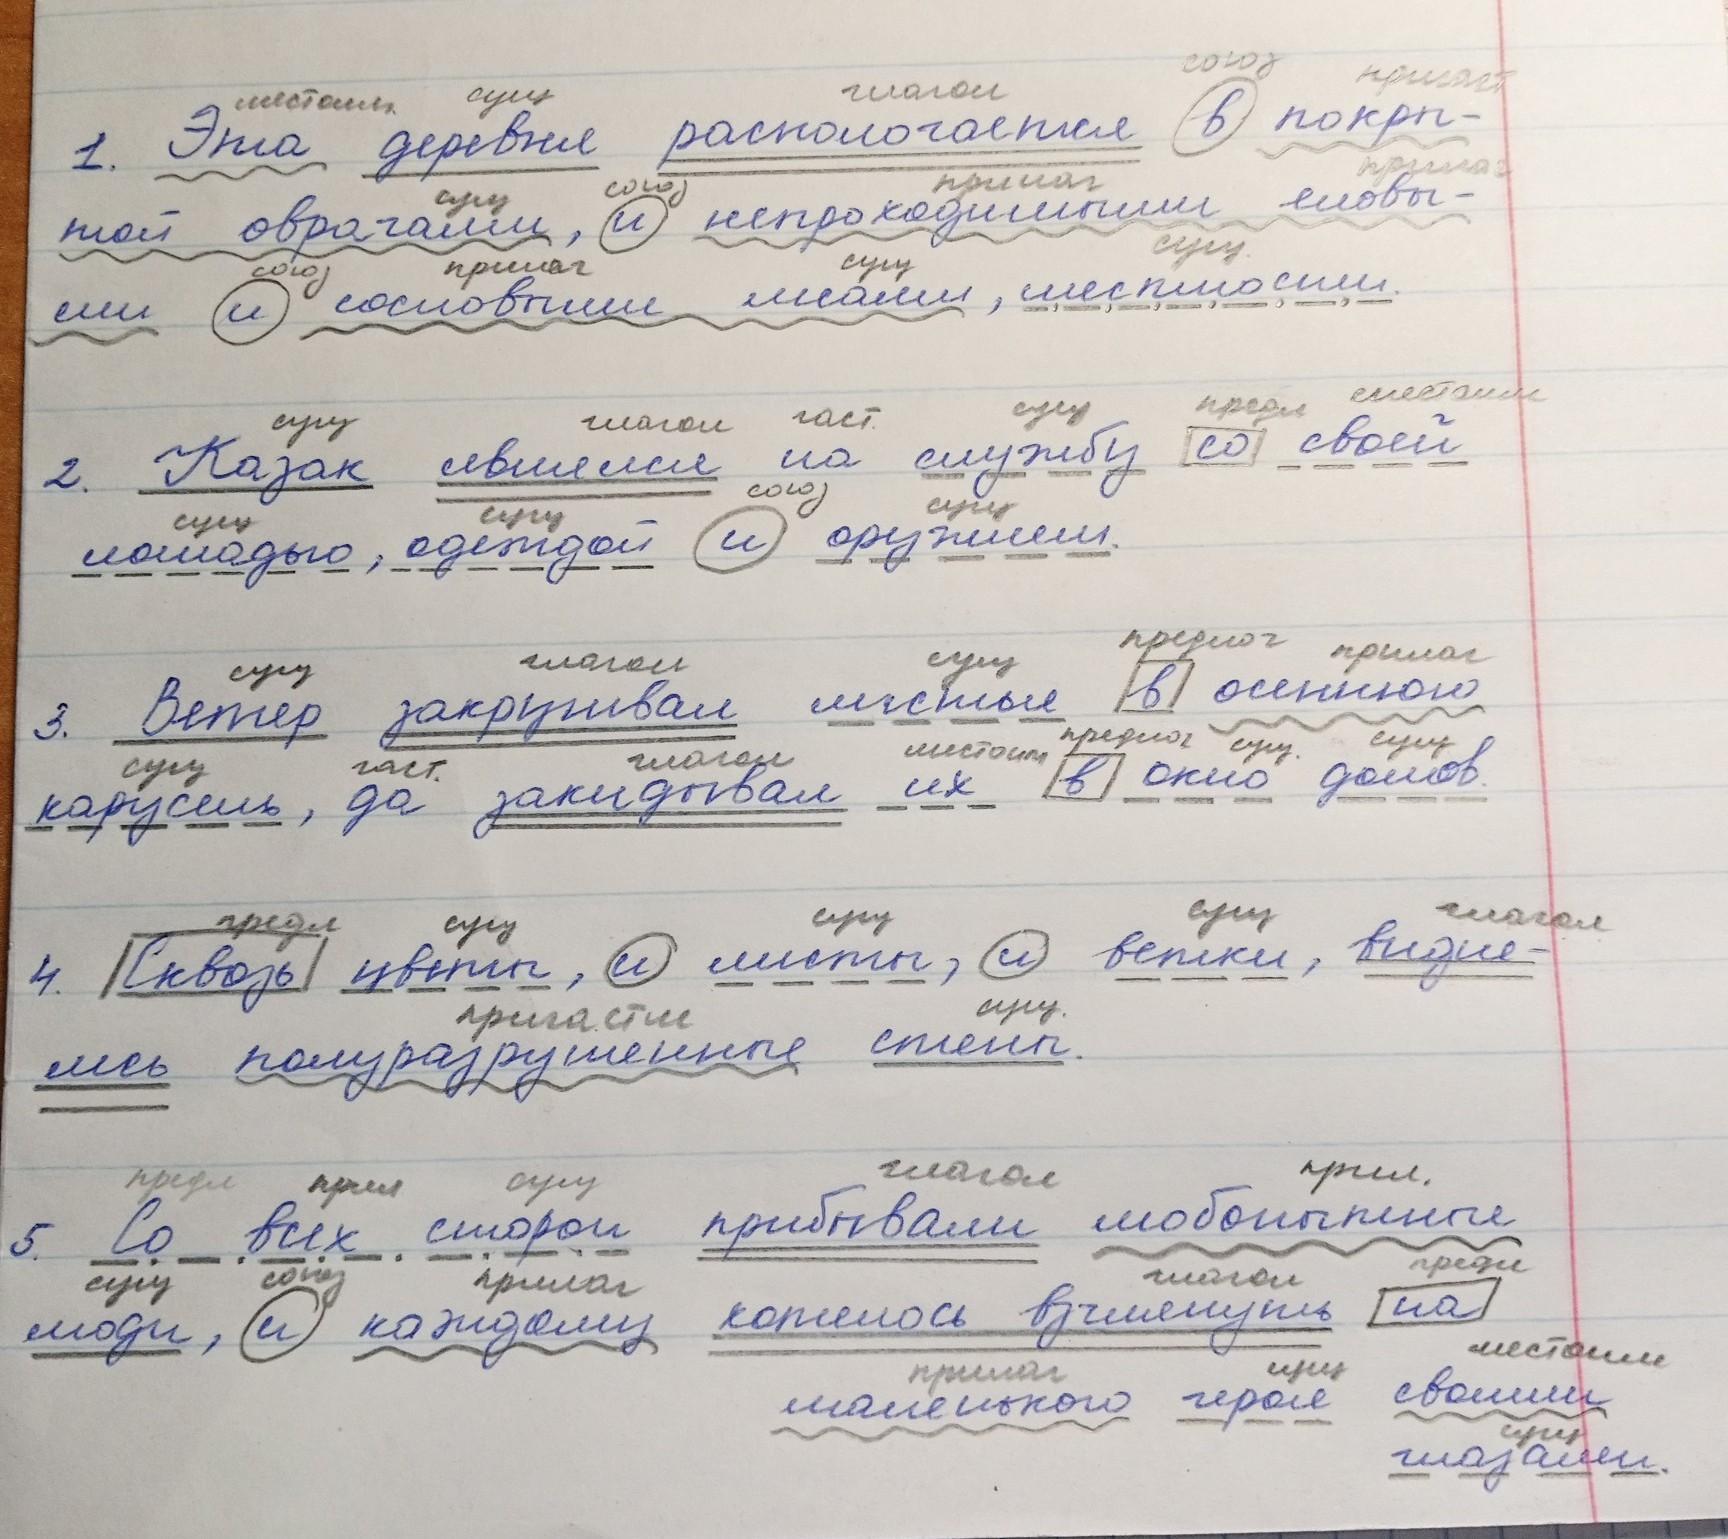 местоим. сущ глагол союз причаст
1. Эта деревня распологается в покры-
сущ союз прилаг прилаг
той оврагами, и непроходимыми еловы-
союз прилаг сущ сущ.
ми и сосновыми лесами, местности.
сущ глагол част. сущ предл местоим
2. Казак явился на службу со своей
сущ сущ союз сущ
лошадью, одеждой и оружием.
сущ глагол сущ предлог прилаг
3. Ветер закруживал листья в осеннюю
сущ част. глагол местоим предлог сущ. сущ
карусель, да закидывал их в окно домов.
предл сущ сущ сущ глагол
4. Сквозь цветы, и листы, и ветки, видне-
причастие сущ.
лись полуразрушенные стены.
предл прил сущ глагол прил.
5. Со всех сторон прибывали любопытные
сущ союз прилаг глагол предл
люди, и каждому хотелось взглянуть на
прилаг сущ местоим
маленького героя своими
сущ
глазами.